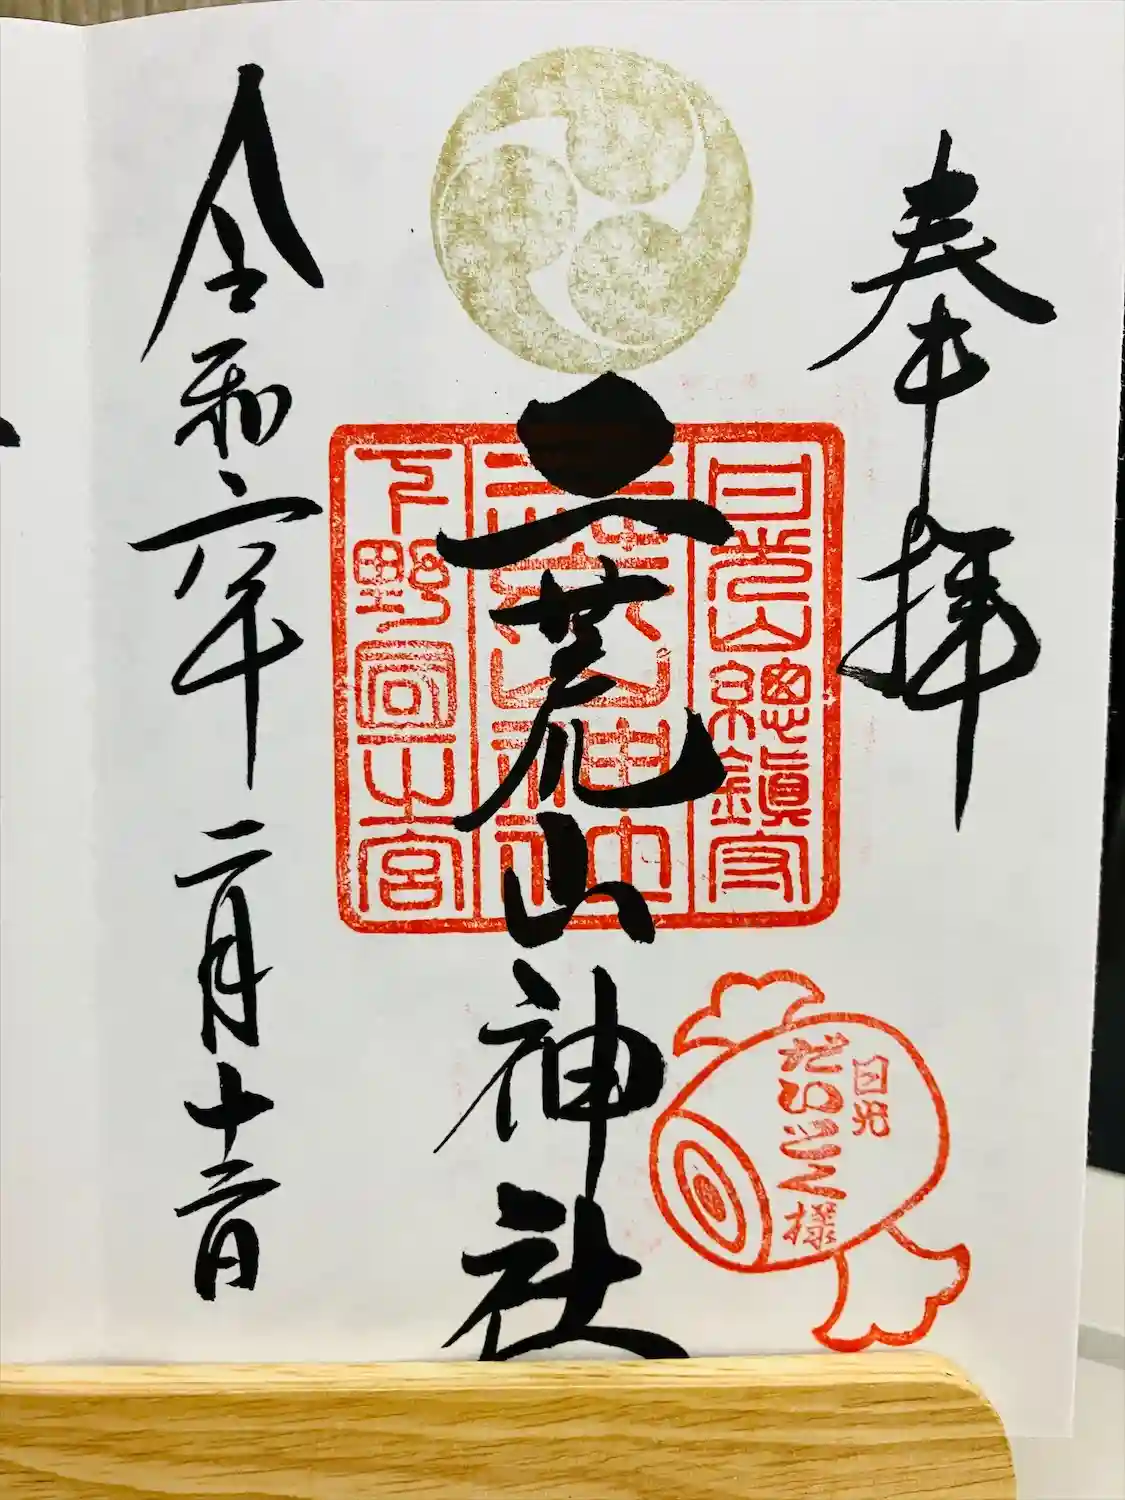 奉拝
日光
だいこく様
日光山總鎮守
二荒山神社
下野國一之宮
令和六年二月十二日